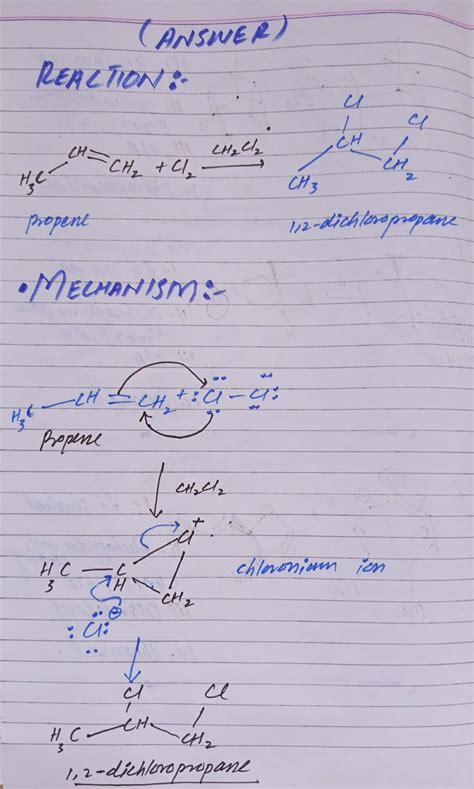 (ANSWER)
REACTION:-
Cl
Cl
CH=CH2 + Cl2 CH2Cl2 CH
H3C CH3 CH2
propene 1,2-dichloropropane
• MECHANISM:-
H3C CH=CH2 + :Cl-Cl:
Propene
CH2Cl2
Cl+
H3C - C
H
CH2
chloronium ion
:Cl: ⊖
Cl Cl
H3C CH CH2
1,2-dichloropropane